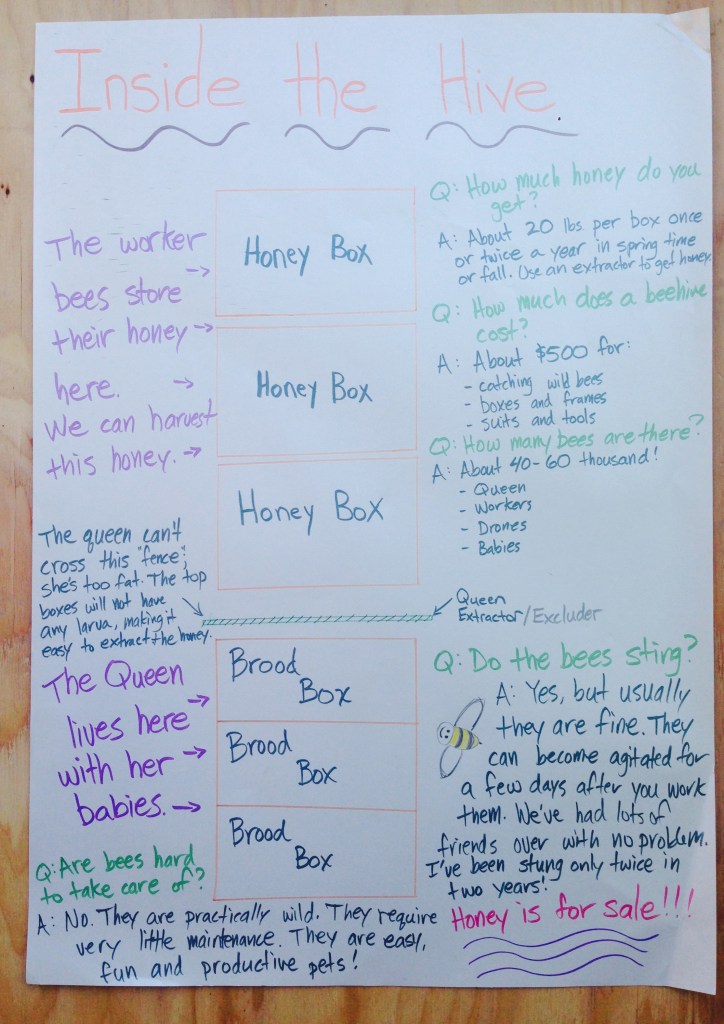 Inside the Hive
The worker
bees store
their honey
here.
We can harvest
this honey.
Honey Box
Honey Box
Honey Box
Q: How much honey do you
get?
A: About 20 lbs. per box once
or twice a year in spring time
or fall. Use an extractor to get honey.
Q: How much does a beehive
cost?
A: About $500 for:
- catching wild bees
- boxes and frames
- suits and tools
Q: How many bees are there?
A: About 40-60 thousand!
- Queen
- Workers
- Drones
- Babies
The queen can't
cross this "fence",
she's too fat. The top
boxes will not have
any larva, making it
easy to extract the honey.
Queen
Extractor/Excluder
The Queen
lives here
with her
babies.
Brood
Box
Brood
Box
Brood
Box
Q: Do the bees sting?
A: Yes, but usually
they are fine. They
can become agitated for
a few days after you work
them. We've had lots of
friends over with no problem.
I've been stung only twice in
two years!
Q: Are bees hard
to take care of?
A: No. They are practically wild. They require
very little maintenance. They are easy,
fun and productive pets!
Honey is for sale!!!